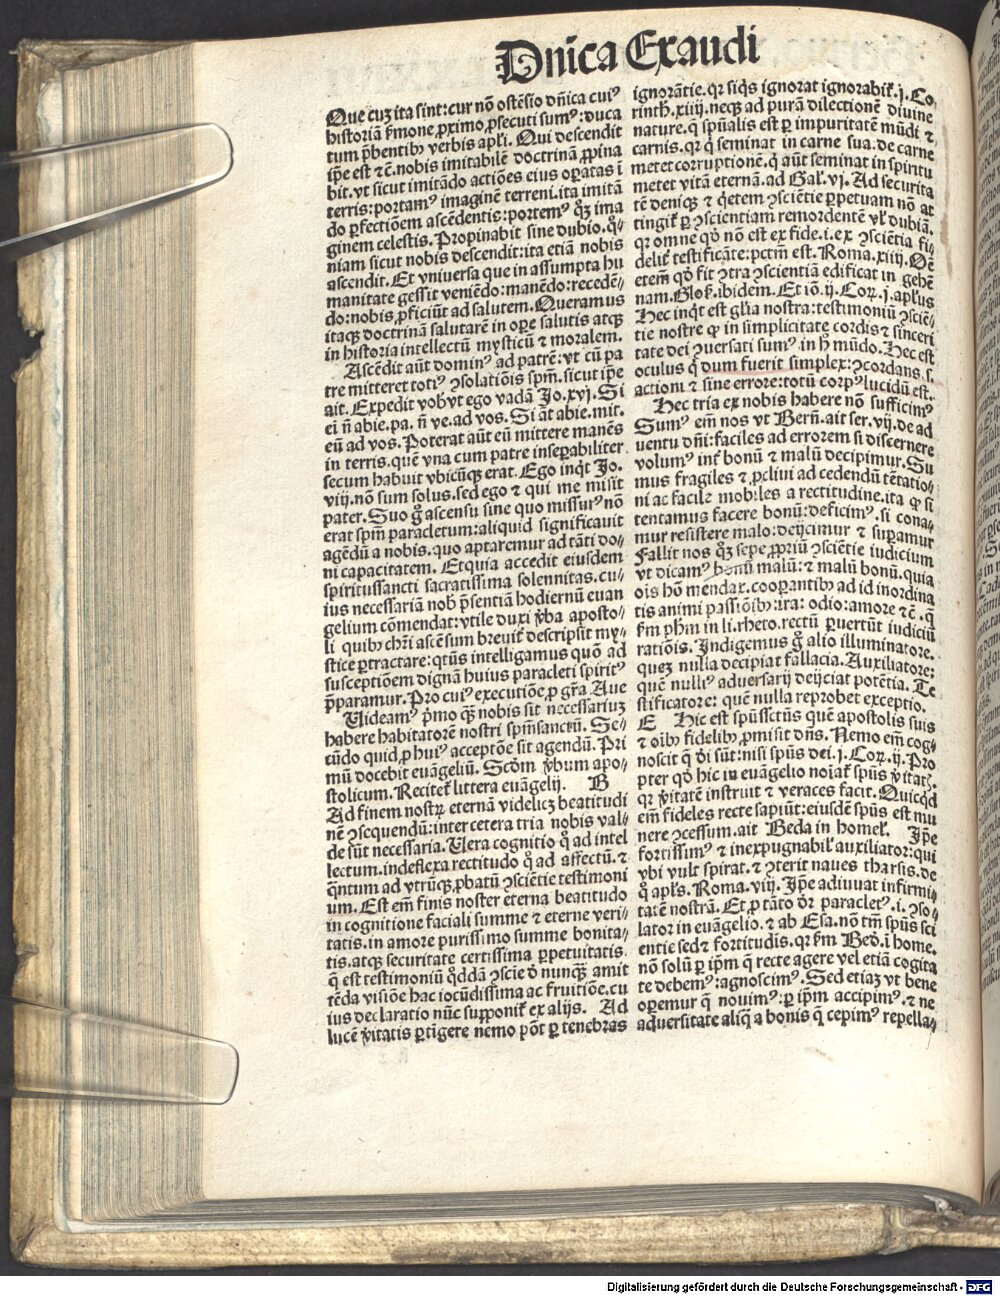 Dñica Exaudi
Que cuz ita sint: cur nõ ostẽsio dñica cuiꝰ
historiã ẜmone ꝓximo ꝓsecuti sumꝰ: duca
tum p̃bentibꝫ verbis apľi. Qui descendit
ip̃e est ⁊ c̃. nobis imitabilẽ doctrinã ꝓpina
bit. vt sicut imitãdo actiões eius oꝑatas ĩ
terris: portamꝰ imaginẽ terreni. ita imitã
do ꝑfectiõem ascẽdentis: portemꝰ ꝙꝫ ima
ginem celestis. Propinabit sine dubio. q̊⸗
niam sicut nobis descendit: ita etiã nobis
ascendit. Et vniuersa que in assumpta hu
manitate gessit veniẽdo: manẽdo: recedẽ⸗
do: nobis ꝓficiũt ad salutem. Queramus
itaqꝫ doctrinã salutarẽ in oꝑe salutis atqꝫ
in historia intellectũ mysticũ ⁊ moralem.
Ascẽdit aũt dominꝰ ad patrẽ: vt cũ pa
tre mitteret totiꝰ ꝯsolatiõis spm̃. sicut ip̃e
ait. Expedit vob̾ vt ego vadã Jo. xvj. Si
eĩ ñ abie. pa. ñ ve. ad vos. Si ãt abie. mit.
eũ ad vos. Poterat aũt eũ mittere manẽs
in terris. quẽ vna cum patre inseꝑabiliter
secum habuit vbicũqꝫ erat. Ego inqͥt Jo.
viij. nõ sum solus. sed ego ⁊ qui me misit
pater. Suo g̊ ascensu sine quo missurꝰ nõ
erat spm̃ paracletum: aliquid significauit
agẽdũ a nobis. quo aptaremur ad tãti do⸗
ni capacitatem. Etquia accedit eiusdem
spiritussancti sacratissima solennitas. cu⸗
ius necessariã nob̾ p̃sentiã hodiernũ euan
gelium cõmendat: vtile duxi v̾ba aposto⸗
li quibꝫ chr̃i ascẽsum breuit̾ descripsit my⸗
stice ꝑtractare: qͣtꝰ intelligamus quõ ad
susceptiõem dignã huius paracleti spiritꝰ
p̃paramur. Pro cuiꝰ executiõe ꝓ gr̃a Aue
Uideamꝰ p̃mo ꝙꝫ nobis sit necessariuz
habere habitatorẽ nostri spm̃sanctũ. Se⸗
cũdo quid ꝓ huiꝰ acceptõe sit agendũ. Pri
mũ docebit euãgeliũ. Scd̾m v̾bum apo⸗
stolicum. Recitet̾ littera euãgelij. B
Ad finem nostrꝫ eternã videlicꝫ beatitudi
nẽ ꝯsequendũ: inter cetera tria nobis vali⸗
de sũt necessaria. Uera cognitio q̊ ad intel
lectum. indeflexa rectitudo q̊ ad affectũ. ⁊
qͣntum ad vtrũqꝫ ꝓbatũ ꝯsciẽtie testimoni
um. Est em̃ finis noster eterna beatitudo
in cognitione faciali summe ⁊ eterne veri⸗
tatis. in amore purissimo summe bonita⸗
tis. atqꝫ securitate certissima ꝑpetuitatis.
q̃ est testimoniũ q̊ddã ꝯscie d̾ nunqꝫ amit
tẽda visiõe hac iocũdissima ac fruitiõe. cu
ius declaratio nũc supponit̾ ex alijs. Ad
lucẽ v̾itatis ꝑtigere nemo põt ꝑ tenebras
ignorãtie. qr siqͥs ignorat ignorabit̾. j. Co⸗
rinth̾. xiiij. neqꝫ ad purã dilectionẽ diuine
nature. q̃ spũalis est ꝑ impuritatẽ mũdi ⁊
carnis. qr q̇ seminat in carne sua. de carne
metet corruptionẽ. q̇ aũt seminat in spiritu
metet vitã eternã. ad Gal̾. vj. Ad securita
tẽ deniqꝫ ⁊ qͥetem ꝯsciẽtie ꝑpetuam nõ at
tingit̾ ꝑ ꝯscientiam remordentẽ vl̾ dubiã.
qr omne qd̾ nõ est ex fide. i. ex ꝯsciẽtia fi⸗
delit̾ testificãte: pctm̃ est. Roma. xiiij. Oẽ
etem̃ qd̾ fit ꝯtra ꝯscientiã edificat in gehẽ
nam. Glos̾. ibidem. Et iõ. ij. Coꝝ. j. apľus
Hec inqͥt est gľia nostra: testimoniũ ꝯsciẽ⸗
tie nostre ꝙ in simplicitate cordis ⁊ sinceri
tate dei ꝯuersati sumꝰ in h̾ mũdo. Hec est
oculus q̇ dum fuerit simplex: ꝯcordans. s.
actioni ⁊ sine errore: totũ corpꝰ lucidũ est.
Hec tria ex nobis habere nõ sufficimꝰ
Sumꝰ em̃ nos vt Bern̾. ait ser. vij. de ad
uentu dñi: faciles ad errorem si discernere
volumꝰ int̾ bonũ ⁊ malũ decipimur. Su
mus fragiles ⁊ ꝓcliui ad cedendũ tẽtatio⸗
ni ac facile mobiles a rectitudine. ita ꝙ si
tentamus facere bonũ: deficimꝰ. si cona⸗
mur resistere malo: deijcimur ⁊ suꝑamur
Fallit nos qͦꝫ sepe ꝓpriũ ꝯsciẽtie iudicium
vt dicamꝰ bonũ malũ: ⁊ malũ bonũ. quia
oĩs hõ mendax. cooꝑantibꝫ ad id inordina
tis animi passiõibꝫ: ira: odio: amore ⁊ c̃. q̃
ẜm phm̃ in li. rheto. rectũ ꝑuertũt iudiciũ
ratiõis. Indigemus g̊ alio illuminatore.
quez nulla decipiat fallacia. Auxiliatore:
quẽ nullꝰ aduersarij deijciat potẽtia. Te
stificatore: quẽ nulla reprobet exceptio.
E Hic est spũssctũs quẽ apostolis suis
⁊ oĩbꝫ fidelibꝫ ꝓmisit dñs. Nemo em̃ cog⸗
noscit q̃ di̾ sũt: nisi spũs dei. j. Coꝝ. ij. Pro
pter qd̾ hic in euãgelio noĩat̾ spũs v̾itatꝭ.
qr v̾itatẽ instruit ⁊ veraces facit. Quicqͥd
em̃ fideles recte sapiũt: eiusdẽ spũs est mu
nere ꝯcessum. ait Beda in homel̾. Ip̃e
fortissimꝰ ⁊ inexpugnabil̾ auxiliator: qui
vbi vult spirat. ⁊ ꝯterit naues tharsis. de
q̊ apľs. Roma. viij. Ip̃e adiuuat infirmi⸗
tatẽ nostrã. Et ꝓ tãto d̾r paracletꝰ. i. ꝯso⸗
lator in euãgelio. ⁊ ab Esa. nõ tm̃ spũs sci
entie sed ⁊ fortitudis. qr ẜm Bed̾. ĩ home.
nõ solũ ꝑ ip̃m q̃ recte agere vel etiã cogita
te debemꝰ: agnoscimꝰ. Sed etiaz vt bene
oꝑemur q̃ nouimꝰ: ꝑ ip̃m accipimꝰ. ⁊ ne
aduersitate aliq̃ a bonis q̃ cepimꝰ reꝑella⸗
Digitalisierung gefördert durch die Deutsche Forschungsgemeinschaft - DFG